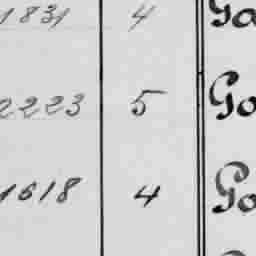 1831 4 Go
2223 5 Go
1618 4 Go